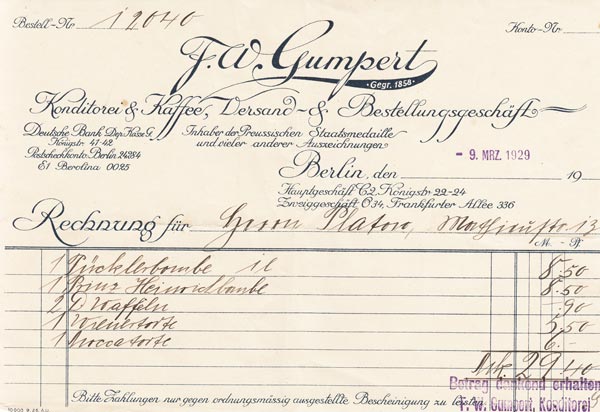 Bestell-Nr. 12040
Konto-Nr.
F.W. Gumpert
Gegr. 1858
Konditorei & Kaffee, Versand- & Bestellungsgeschäft
Deutsche Bank Dep. Kasse G.
Königstr. 47-42
Postscheckkonto Berlin 24284
E1 Berolina 0025
Inhaber der Preussischen Staatsmedaille
und vieler anderer Auszeichnungen
- 9. MRZ. 1929
Berlin, den 19
Hauptgeschäft C2, Königstr. 22-24
Zweiggeschäft O.34, Frankfurter Allee 336
Rechnung für Herrn Platow, 13
M. Pf.
1 Pücklerbombe 8.50
1 Prinz Heinrichbombe 8.50
2 P. Waffeln -.90
1 Wienertorte 5.50
1 Moccatorte 6.-
Mk. 29.40
Betrag dankend erhalten
Bitte Zahlungen nur gegen ordnungsmässig ausgestellte Bescheinigung zu leisten.
F. W. Gumpert, Konditorei